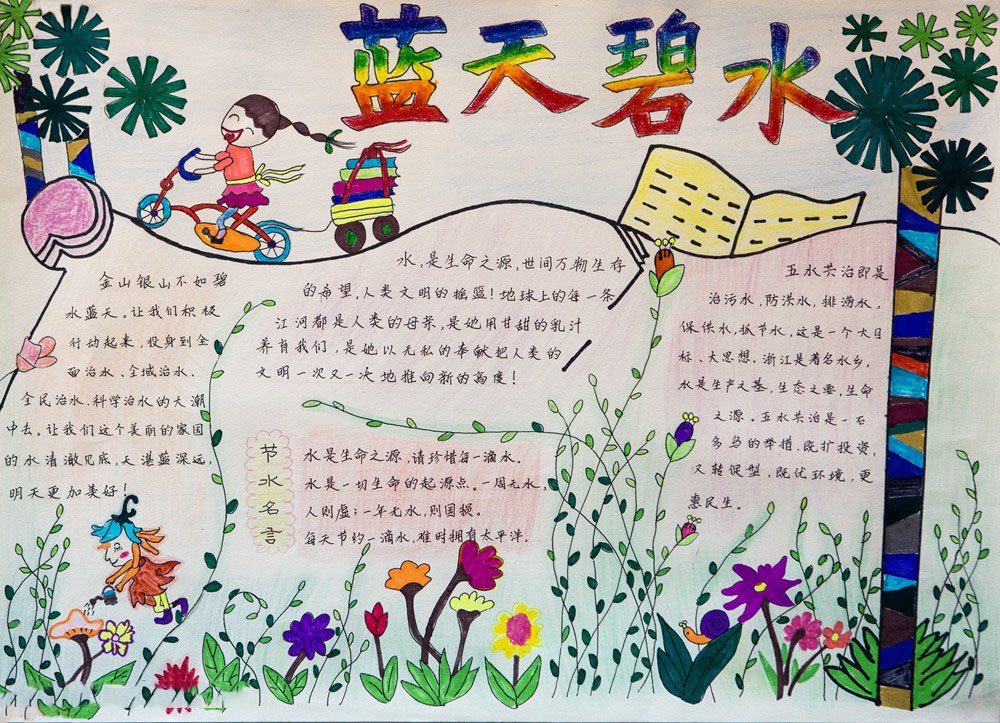 蓝天碧水
金山银山不如碧
水蓝天。让我们积极
行动起来,投身到全
面治水、全域治水、
全民治水、科学治水的大潮
中去。让我们这个美丽的家园
的水清澈见底,天湛蓝深远,
明天更加美好!
水,是生命之源,世间万物生存
的希望,人类文明的摇篮!地球上的每一条
江河都是人类的母亲,是她用甘甜的乳汁
养育我们,是她以无私的奉献把人类的
文明一次又一次地推向新的高度!
节水名言
水是生命之源,请珍惜每一滴水。
水是一切生命的起源点。一周无水,
人则虚;一年无水,则国损。
每天节约一滴水,难时拥有太平洋。
五水共治即是
治污水,防洪水,排涝水,
保供水,抓节水,这是一个大目
标、大思想,浙江是著名水乡,
水是生产之基,生态之要,生命
之源。五水共治是一石
多鸟的举措,既扩投资,
又转促型,既优环境,更
惠民生。